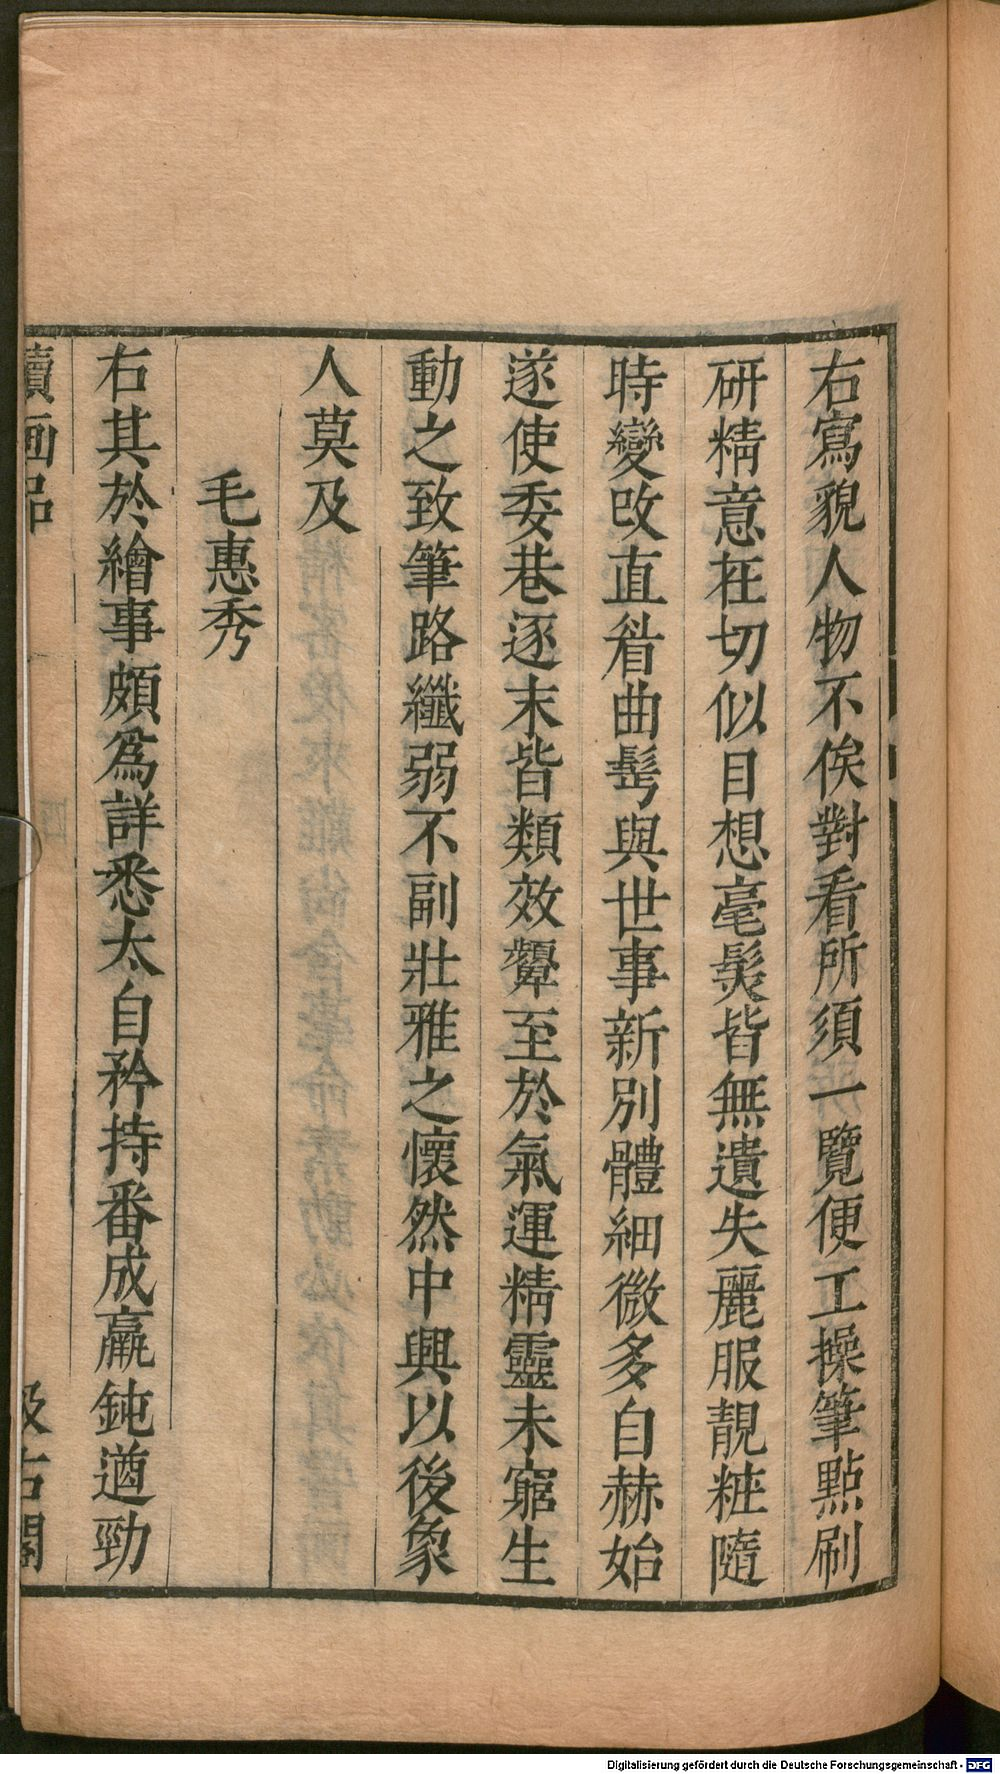 右寫貌人物不俟對看所須一覽便工操筆點刷
研精意在切似目想毫髮皆無遺失麗服靚粧隨
時變改直眉曲髩與世事新別體細微多自赫始
遂使委巷逐末皆類效顰至於氣運精靈未窮生
動之致筆路纖弱不副壯雅之懷然中興以後象
人莫及
毛惠秀
右其於繪事頗為詳悉太自矜持番成羸鈍遒勁
續画品
汲古閣
Digitalisierung gefördert durch die Deutsche Forschungsgemeinschaft - DFG